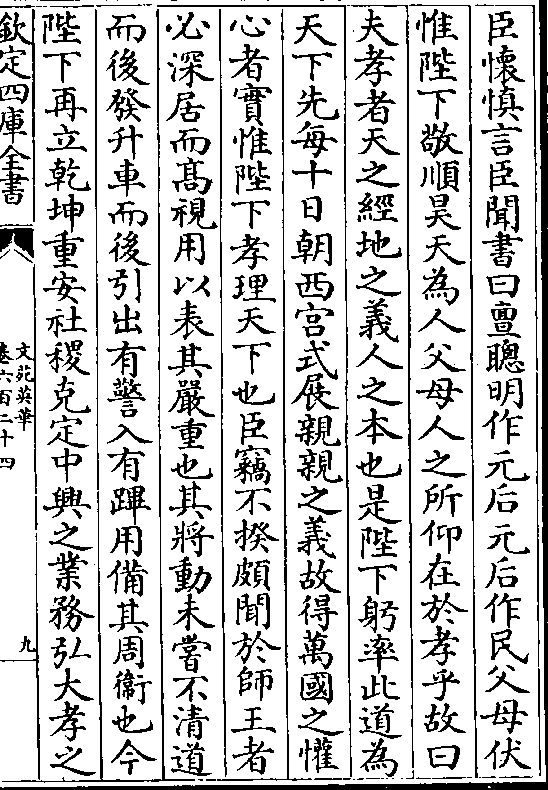 臣懐慎言臣聞書曰亶聰明作元后元后作民父母伏
惟陛下敬順昊天為人父母人之所仰在於孝乎故曰
夫孝者天之經地之義人之本也是陛下躬率此道為
天下先每十日朝西宫式展親親之義故得萬國之懽
心者實惟陛下孝理天下也臣竊不揆頗聞於師王者
必深居而髙視用以表其嚴重也其將動未嘗不清道
而後發升車而後引出有警入有蹕用備其周衞也今
陛下再立乾坤重安社稷克定中興之業務弘大孝之
欽定四庫全書
文苑英華
卷六百二十四
九